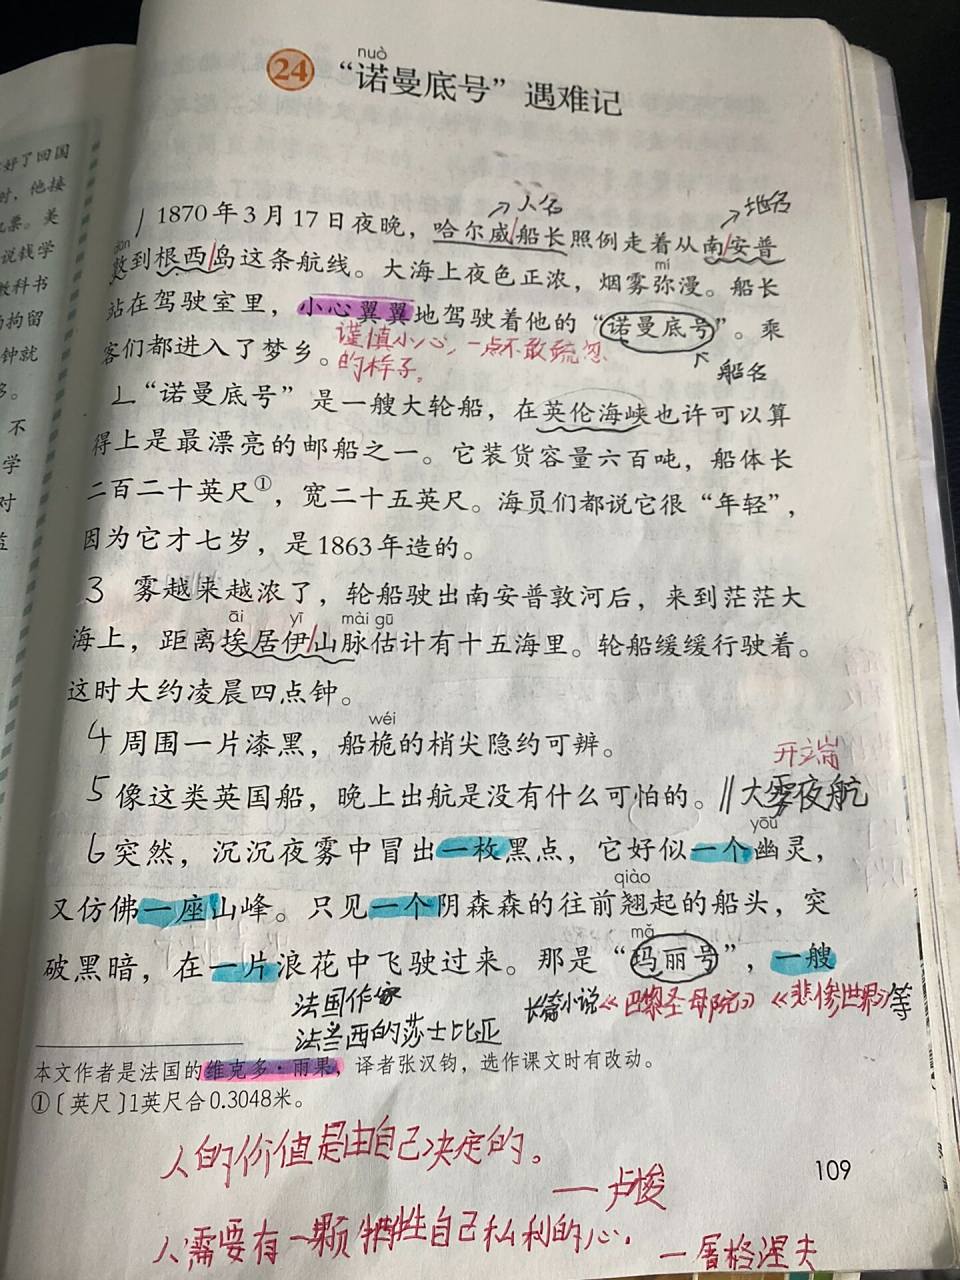 好了回国
时，他接
机票。美
说钱学
教科书
拘留
钟就
多。
不
学
对
nuò
24 “诺曼底号”遇难记
人名
地名
1 1870年3月17日夜晚，哈尔威/船长照例走着从南/安普
dūn
敦到根西/岛这条航线。大海上夜色正浓，烟雾弥漫。船长
mí
站在驾驶室里，小心翼翼地驾驶着他的“诺曼底号”。乘
谨慎小心，一点不敢疏忽
客们都进入了梦乡。
的样子。
船名
2 “诺曼底号”是一艘大轮船，在英伦海峡也许可以算
得上是最漂亮的邮船之一。它装货容量六百吨，船体长
二百二十英尺①，宽二十五英尺。海员们都说它很“年轻”，
因为它才七岁，是1863年造的。
3 雾越来越浓了，轮船驶出南安普敦河后，来到茫茫大
āi yī mài gū
海上，距离埃居伊/山脉估计有十五海里。轮船缓缓行驶着。
这时大约凌晨四点钟。
wéi
4 周围一片漆黑，船桅的梢尖隐约可辨。
开端
5 像这类英国船，晚上出航是没有什么可怕的。∥大雾夜航
yōu
6 突然，沉沉夜雾中冒出一枚黑点，它好似一个幽灵，
qiào
又仿佛一座山峰。只见一个阴森森的往前翘起的船头，突
mǎ
破黑暗，在一片浪花中飞驶过来。那是“玛丽号”，一艘
法国作家
长篇小说《巴黎圣母院》《悲惨世界》等
法兰西的莎士比亚
本文作者是法国的维克多·雨果，译者张汉钧，选作课文时有改动。
①〔英尺〕1英尺合0.3048米。
人的价值是由自己决定的。
109
——卢梭
人需要有一颗牺牲自己私利的心。
—屠格涅夫